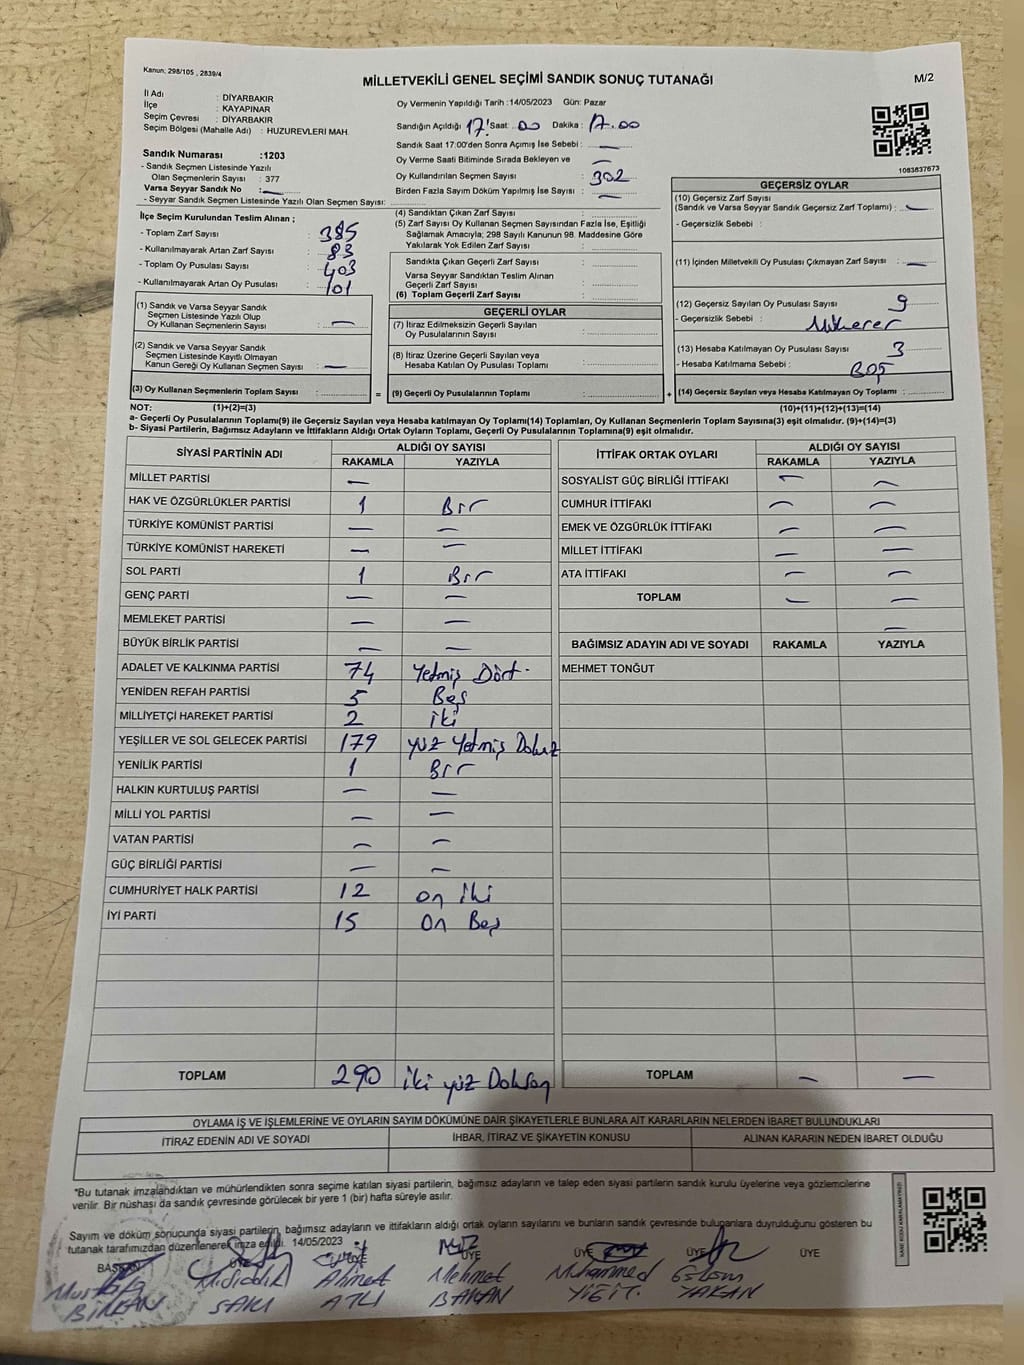 Kanun; 298/105 , 2839/4
MİLLETVEKİLİ GENEL SEÇİMİ SANDIK SONUÇ TUTANAĞI
M/2
İl Adı : DİYARBAKIR
İlçe : KAYAPINAR
Seçim Çevresi : DİYARBAKIR
Seçim Bölgesi (Mahalle Adı) : HUZUREVLERİ MAH.
Sandık Numarası :1203
- Sandık Seçmen Listesinde Yazılı
Olan Seçmenlerin Sayısı : 377
Varsa Seyyar Sandık No : —
- Seyyar Sandık Seçmen Listesinde Yazılı Olan Seçmen Sayısı:
Oy Vermenin Yapıldığı Tarih :14/05/2023 Gün: Pazar
Sandığın Açıldığı 17! Saat: 00 Dakika : 17.00
Sandık Saat 17:00'den Sonra Açımış İse Sebebi : —
Oy Verme Saati Bitiminde Sırada Bekleyen ve —
Oy Kullandırılan Seçmen Sayısı : 302
Birden Fazla Sayım Döküm Yapılmış İse Sayısı : —
1083837673
İlçe Seçim Kurulundan Teslim Alınan ;
- Toplam Zarf Sayısı : 385
- Kullanılmayarak Artan Zarf Sayısı : 83
- Toplam Oy Pusulası Sayısı : 403
- Kullanılmayarak Artan Oy Pusulası : 101
(1) Sandık ve Varsa Seyyar Sandık
Seçmen Listesinde Yazılı Olup
Oy Kullanan Seçmenlerin Sayısı : —
(2) Sandık ve Varsa Seyyar Sandık
Seçmen Listesinde Kayıtlı Olmayan
Kanun Gereği Oy Kullanan Seçmen Sayısı : —
(3) Oy Kullanan Seçmenlerin Toplam Sayısı :
(4) Sandıktan Çıkan Zarf Sayısı :
(5) Zarf Sayısı Oy Kullanan Seçmen Sayısından Fazla İse, Eşitliği
Sağlamak Amacıyla; 298 Sayılı Kanunun 98. Maddesine Göre
Yakılarak Yok Edilen Zarf Sayısı :
Sandıkta Çıkan Geçerli Zarf Sayısı :
Varsa Seyyar Sandıktan Teslim Alınan
Geçerli Zarf Sayısı :
(6) Toplam Geçerli Zarf Sayısı :
GEÇERLİ OYLAR
(7) İtiraz Edilmeksizin Geçerli Sayılan
Oy Pusulalarının Sayısı :
(8) İtiraz Üzerine Geçerli Sayılan veya
Hesaba Katılan Oy Pusulası Toplamı :
= (9) Geçerli Oy Pusulalarının Toplamı :
GEÇERSİZ OYLAR
(10) Geçersiz Zarf Sayısı
(Sandık ve Varsa Seyyar Sandık Geçersiz Zarf Toplamı) : —
- Geçersizlik Sebebi :
(11) İçinden Milletvekili Oy Pusulası Çıkmayan Zarf Sayısı : —
(12) Geçersiz Sayılan Oy Pusulası Sayısı : 9
- Geçersizlik Sebebi : Mükerer
(13) Hesaba Katılmayan Oy Pusulası Sayısı : 3
- Hesaba Katılmama Sebebi : BOŞ
+ (14) Geçersiz Sayılan veya Hesaba Katılmayan Oy Toplamı :
NOT: (1)+(2)=(3)
(10)+(11)+(12)+(13)=(14)
a- Geçerli Oy Pusulasının Toplamı(9) ile Geçersiz Sayılan veya Hesaba katılmayan Oy Toplamı(14) Toplamları, Oy Kullanan Seçmenlerin Toplam Sayısına(3) eşit olmalıdır. (9)+(14)=(3)
b- Siyasi Partilerin, Bağımsız Adayların ve İttifakların Aldığı Ortak Oyların Toplamı, Geçerli Oy Pusulalarının Toplamına(9) eşit olmalıdır.
SİYASİ PARTİNİN ADI ALDIĞI OY SAYISI
RAKAMLA YAZIYLA
MİLLET PARTİSİ —
HAK VE ÖZGÜRLÜKLER PARTİSİ 1 Bir
TÜRKİYE KOMÜNİST PARTİSİ — —
TÜRKİYE KOMÜNİST HAREKETİ — —
SOL PARTİ 1 Bir
GENÇ PARTİ — —
MEMLEKET PARTİSİ — —
BÜYÜK BİRLİK PARTİSİ — —
ADALET VE KALKINMA PARTİSİ 74 Yetmiş Dört
YENİDEN REFAH PARTİSİ 5 Beş
MİLLİYETÇİ HAREKET PARTİSİ 2 iki
YEŞİLLER VE SOL GELECEK PARTİSİ 179 yüz Yetmiş Dokuz
YENİLİK PARTİSİ 1 Bir
HALKIN KURTULUŞ PARTİSİ — —
MİLLİ YOL PARTİSİ — —
VATAN PARTİSİ — —
GÜÇ BİRLİĞİ PARTİSİ — —
CUMHURİYET HALK PARTİSİ 12 on iki
İYİ PARTİ 15 On Beş
TOPLAM 290 iki yüz Doksan
İTTİFAK ORTAK OYLARI ALDIĞI OY SAYISI
RAKAMLA YAZIYLA
SOSYALİST GÜÇ BİRLİĞİ İTTİFAKI — —
CUMHUR İTTİFAKI — —
EMEK VE ÖZGÜRLÜK İTTİFAKI — —
MİLLET İTTİFAKI — —
ATA İTTİFAKI — —
TOPLAM — —
BAĞIMSIZ ADAYIN ADI VE SOYADI RAKAMLA YAZIYLA
MEHMET TONĞUT
TOPLAM — —
OYLAMA İŞ VE İŞLEMLERİNE VE OYLARIN SAYIM DÖKÜMÜNE DAİR ŞİKAYETLERLE BUNLARA AİT KARARLARIN NELERDEN İBARET BULUNDUKLARI
İTİRAZ EDENİN ADI VE SOYADI İHBAR, İTİRAZ VE ŞİKAYETİN KONUSU ALINAN KARARIN NEDEN İBARET OLDUĞU
*Bu tutanak imzalandıktan ve mühürlendikten sonra seçime katılan siyasi partilerin, bağımsız adayların ve talep eden siyasi partilerin sandık kurulu üyelerine veya gözlemcilerine
verilir. Bir nüshası da sandık çevresinde görülecek bir yere 1 (bir) hafta süreyle asılır.
Sayım ve döküm sonucunda siyasi partilerin, bağımsız adayların ve ittifakların aldığı ortak oyların sayılarını ve bunların sandık çevresinde bulunanlara duyrulduğunu gösteren bu
tutanak tarafımızdan düzenlenerek imza edildi. 14/05/2023
BAŞKAN ÜYE ÜYE ÜYE ÜYE ÜYE ÜYE
Mustafa M.Sıddık Ahmet Mehmet Muhammed
SAKI ATLI BAKAN YİĞİT